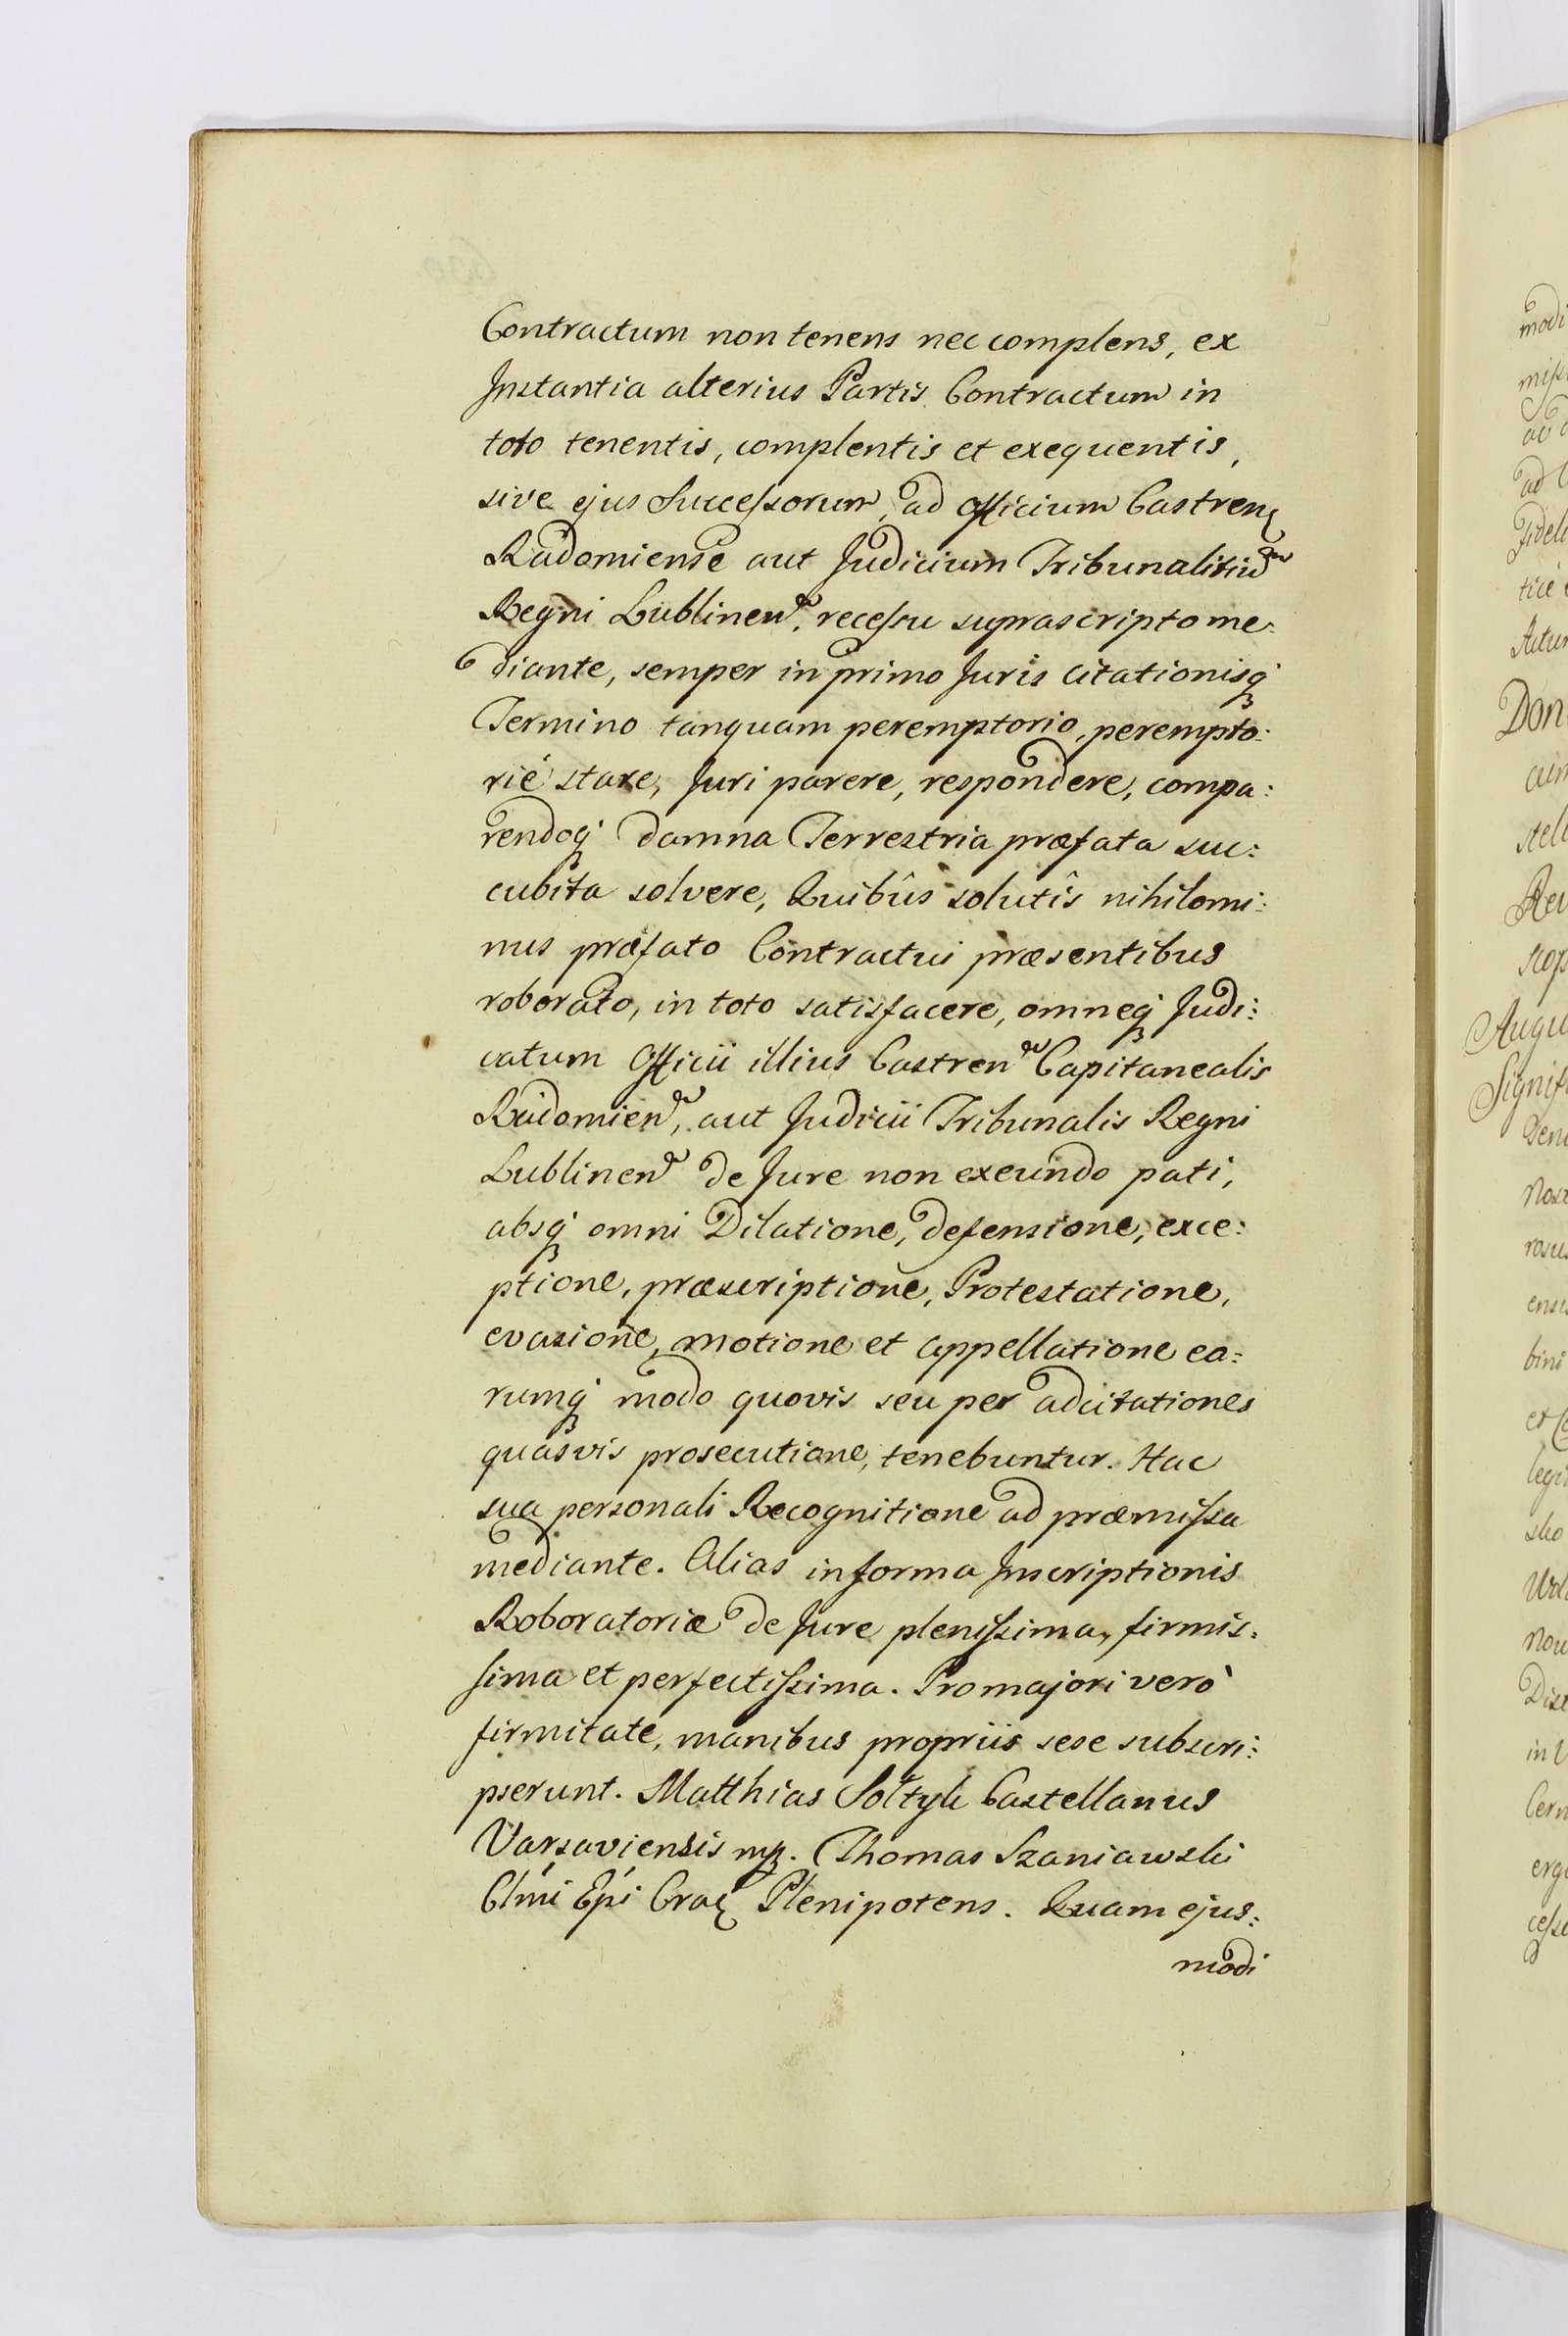 Contractum non tenens nec complens, ex
Instantia alterius Partis Contractum in
toto tenentis, complentis et exequentis,
sive ejus Successorum, ad Officium Castren
Radomiense aut Judicium Tribunalitium
Regni Lublinen, recessu suprascripto me:
diante, semper in primo Juris Citationisq
Termino tanquam peremptorio, perempto:
rié stare, Juri parere, respondere, compa:
rendoq damna Terrestria præfata suc:
cubita solvere, Quibûs solutîs nihilomi:
nus præfato Contractui præsentibus
roborato, in toto satisfacere, omneq Judi:
catum Officii illius Castren Capitanealis
Radomien, aut Judicii Tribunalis Regni
Lublinen de Jure non exeundo pati,
absq omni Dilatione, defensione, exce:
ptione, præscriptione, Protestatione,
evasione, motione et appellatione ea:
rumq modo quovis seu per adcitationes
quasvis prosecutione, tenebuntur. Hac
sua personali Recognitione ad præmissa
mediante. Alias in forma Inscriptionis
Roboratoriæ de Jure plenissima, firmis:
sima et perfectissima. Pro majori verò
firmitate, manibus propriis sese subscri:
pserunt. Matthias Sołtyk Castellanus
Varsaviensis mp. Thomas Szaniawski
Clmi Epi Crac Plenipotens. Quam ejus:
modi
modi
ad
Don
Augu
Signif
Nost
ensis
bini
et
in
Cern